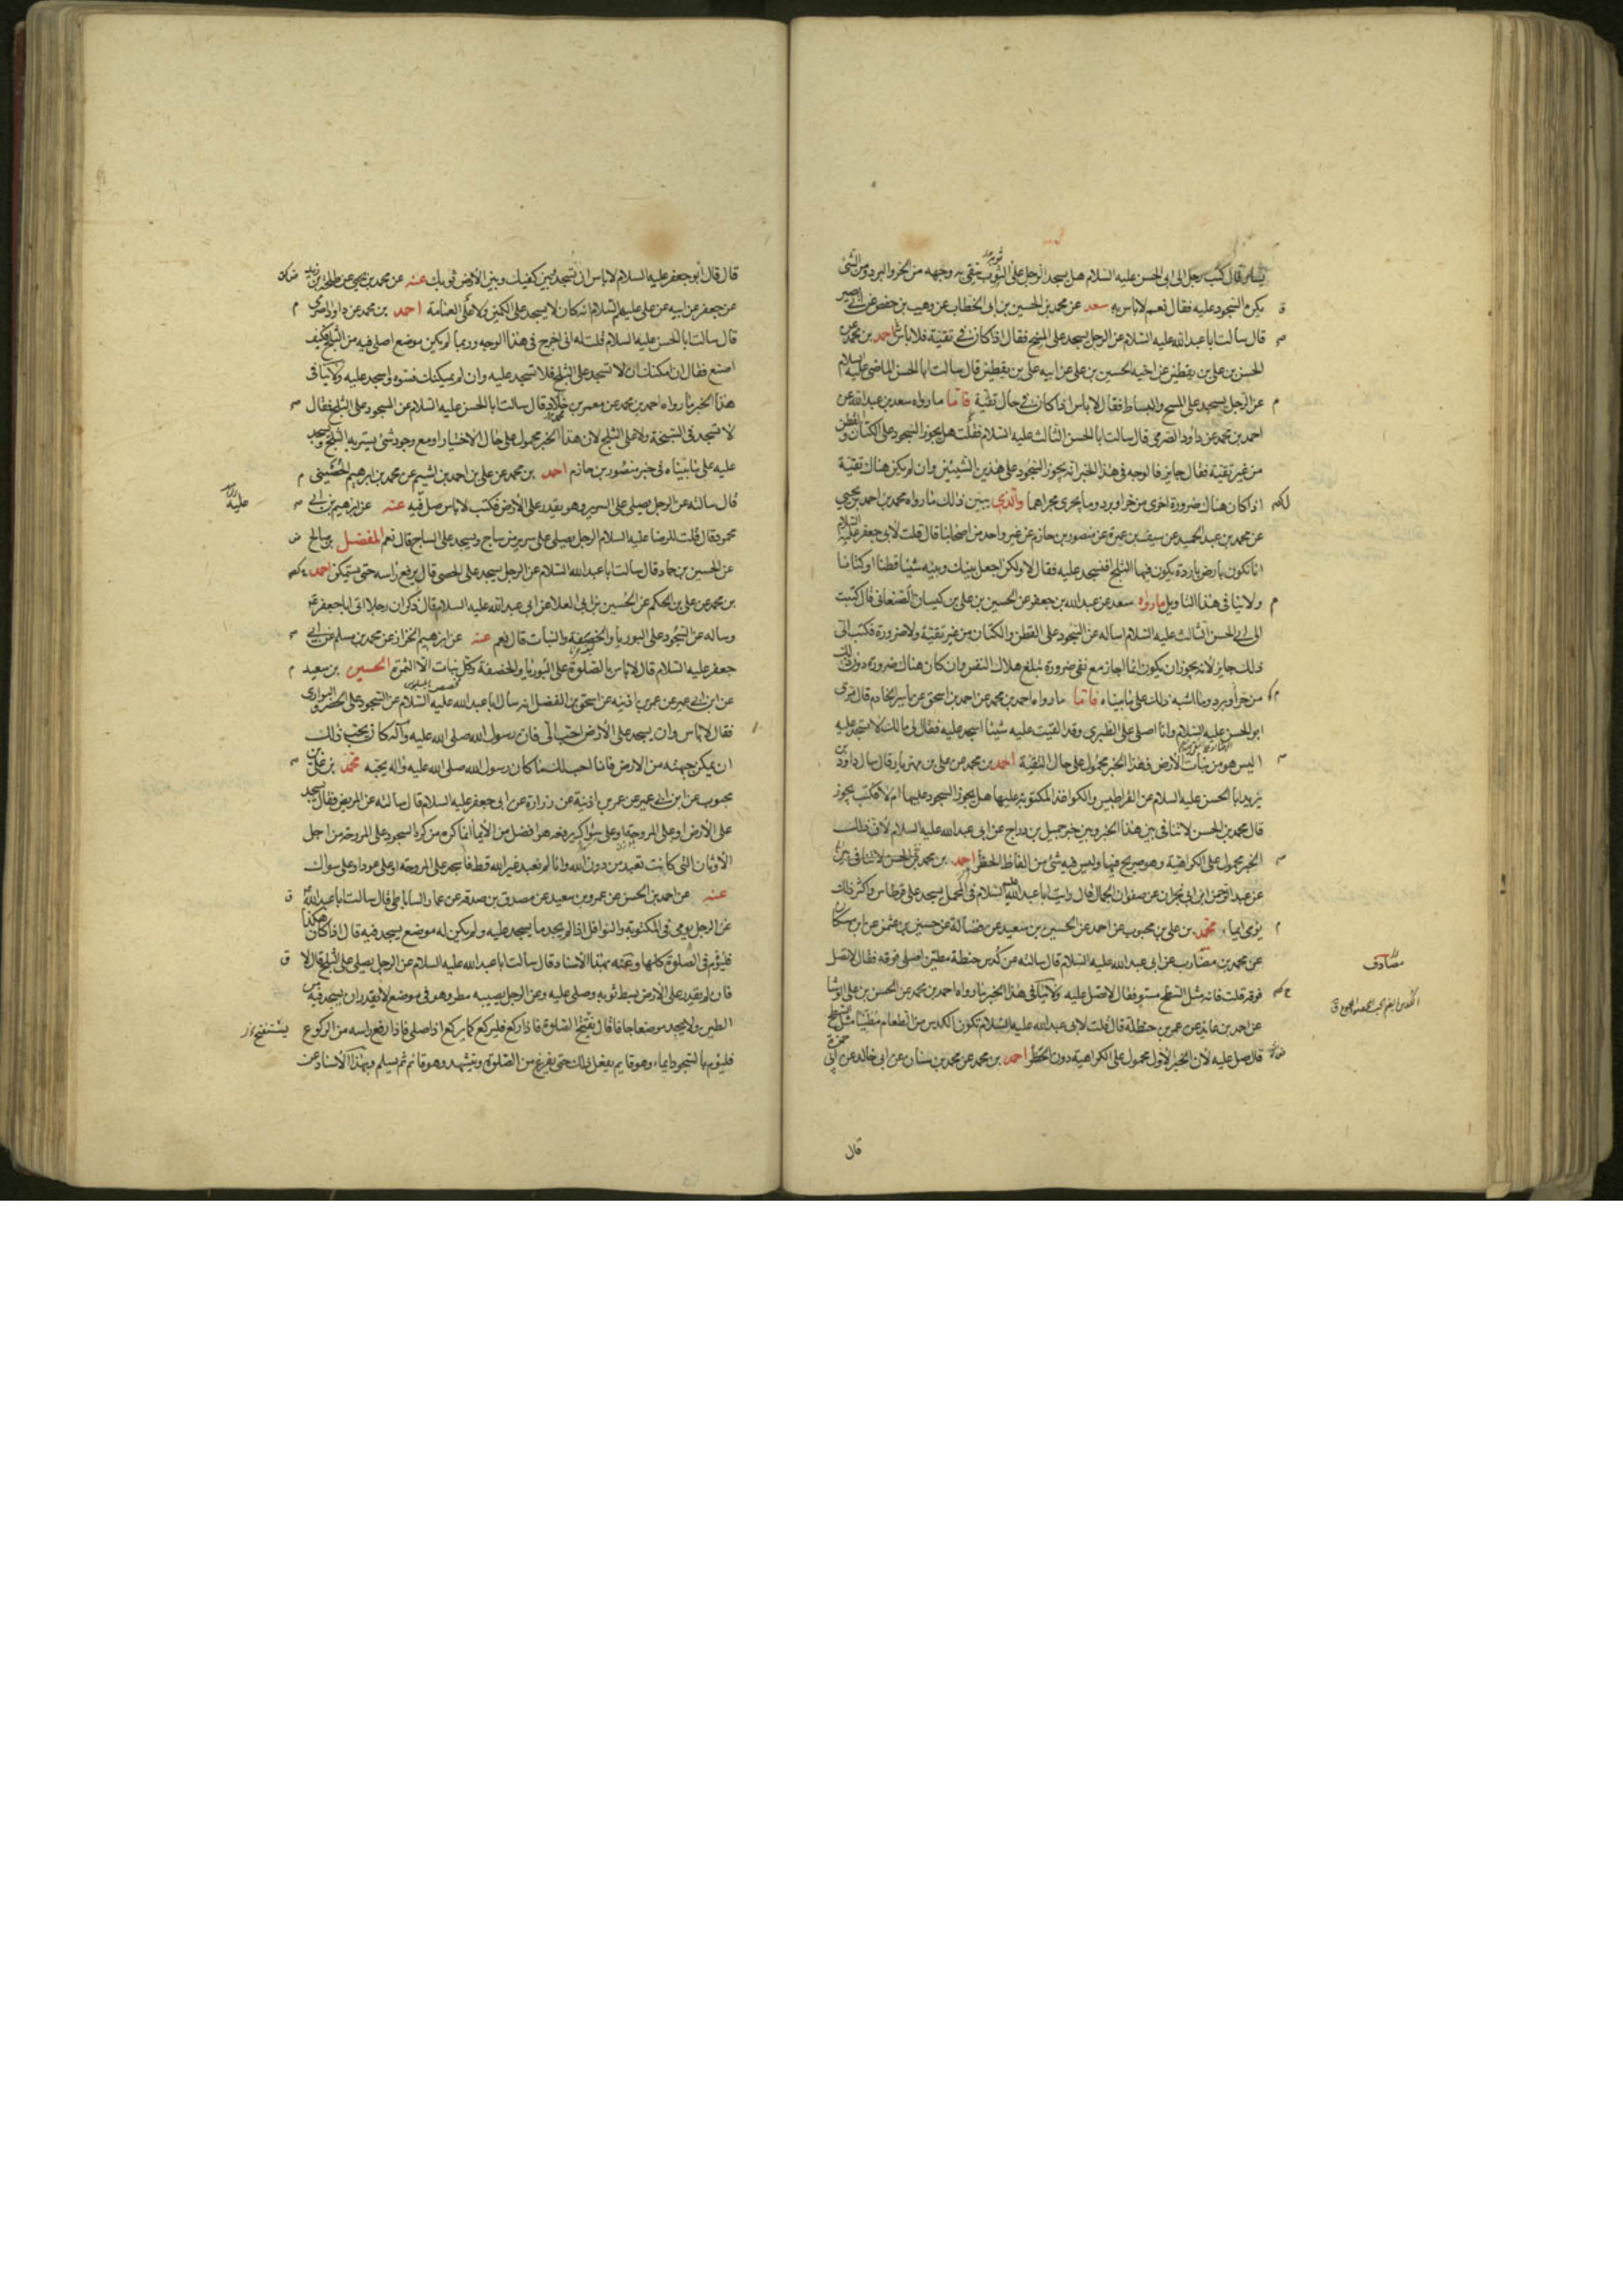 يسار قال كتب رجل الى ابى الحسن عليه السلام هل يسجد الرجل على الثوب يتقى به وجهه من الحر والبرد ومن الشئ
يكره السجود عليه فقال نعم لا باس به سعد عن محمد بن الحسين بن ابى الخطاب عن وهيب بن حفص عن ابى بصير
قال سالت ابا عبد الله عليه السلام عن الرجل يسجد على المسح فقال اذا كان فى تقية فلا باس احمد بن محمد عن
الحسن بن على بن يقطين عن اخيه الحسين بن على عن ابيه على بن يقطين قال سالت ابا الحسن الماضى عليه السلام
عن الرجل يسجد على المسح والبساط فقال لا باس اذا كان فى حال تقية فاما ما رواه سعد بن عبد الله عن
احمد بن محمد عن داود الصرمى قال سالت ابا الحسن الثالث عليه السلام فقلت هل يجوز السجود على الكتان والقطن
من غير تقية فقال جايز فالوجه فى هذا الخبر انه يجوز السجود على هذين الشيئين وان لم يكن هناك تقية
اذا كان هناك ضرورة اخرى من حر او برد وما يجرى مجراهما والذى يبين ذلك ما رواه محمد بن احمد بن يحيى
عن محمد بن عبد الحميد عن سيف بن عميرة عن منصور بن حازم عن غير واحد من اصحابنا قال قلت لابى جعفر عليه السلام
انا نكون بارض باردة يكون فيها الثلج افنسجد عليه فقال لا ولكن اجعل بينك وبينه شيئا قطنا او كتانا
ولا ينافى هذا التاويل ما رواه سعد عن عبد الله بن جعفر عن الحسين بن على بن كيسان الصنعانى قال كتبت
الى ابى الحسن الثالث عليه السلام اساله عن السجود على القطن والكتان من غير تقية ولا ضرورة فكتب الى
ذلك جايز لانه يجوز ان يكون انما اجاز مع نفى ضرورة تبلغ هلاك النفس وان كان هناك ضرورة دون ذلك
من حر او برد وما اشبه ذلك على ما بيناه فاما ما رواه احمد بن محمد عن احمد بن اسحق عن ياسر الخادم قال مر بى
ابو الحسن عليه السلام وانا اصلى على الطبرى وقد القيت عليه شيئا اسجد عليه فقال لى ما لك لا تسجد عليه
اليس هو من نبات الارض فهذا الخبر محمول على حال التقية احمد بن محمد عن على بن مهزيار قال سال داود بن
يزيد ابا الحسن عليه السلام عن القراطيس والكواغذ المكتوبة عليها هل يجوز السجود عليها ام لا فكتب يجوز
قال محمد بن الحسن لا تنافى بين هذا الخبر وبين خبر جميل بن دراج عن ابى عبد الله عليه السلام لان ذلك
الخبر محمول على الكراهية وهو صريح فيها وليس فيه شئ من الفاظ الحظر احمد بن محمد
عن عبد الرحمن ابن ابى نجران عن صفوان الجمال قال رايت ابا عبد الله عليه السلام فى المحمل يسجد على قرطاس واكثر ذلك
يومى ايماء محمد بن على بن محبوب عن احمد عن الحسين بن سعيد عن فضالة عن حسين بن عثمن عن ابن مسكان
عن محمد بن مضارب عن ابى عبد الله عليه السلام قال سالته عن كدس حنطة مطين اصلى فوقه فقال لا تصل
فوقه قلت فانه مثل السطح مستو فقال لا تصل عليه ولا ينافى هذا الخبر ما رواه احمد بن محمد عن الحسن بن على الوشا
عن احمد بن عائذ عن عمر بن حنظلة قال قلت لابى عبد الله عليه السلام تكون الكدس من الطعام مطينا مثل السطح
قال صل عليه لان الخبر الاول محمول على الكراهية دون الحظر احمد بن محمد عن محمد بن سنان عن ابى خالد عن ابى حمزة
مصادف
قال
قال قال ابو جعفر عليه السلام لا باس ان تسجد وبين كفيك وبين الارض ثوبك عنه عن محمد بن يحيى عن طلحة بن زيد
عن جعفر عن ابيه عن على عليهم السلام انه كان لا يسجد على الكمين ولا على العمامة احمد بن محمد عن داود الصرمى
قال سالت ابا الحسن عليه السلام قلت له انى اخرج فى هذا الوجه وربما لم يكن موضع اصلى فيه من الثلج فكيف
اصنع فقال ان امكنك ان لا تسجد على الثلج فلا تسجد عليه وان لم يمكنك فسوه واسجد عليه ولا ينافى
هذا الخبر ما رواه احمد بن محمد عن معمر بن خلاد قال سالت ابا الحسن عليه السلام عن السجود على الثلج فقال
لا تسجد فى السبخة ولا على الثلج لان هذا الخبر محمول على حال الاختيار او مع وجود شئ يستر به الثلج ويسجد
عليه على ما بيناه فى خبر منصور بن حازم احمد بن محمد عن على بن احمد بن اشيم عن محمد بن ابرهيم الحضينى
قال سالته عن الرجل يصلى على السرير وهو يقدر على الارض فكتب لا باس صل فيه عنه عن ابرهيم بن ابى
محمود قال قلت للرضا عليه السلام الرجل يصلى على سرير من ساج ويسجد على الساج قال نعم المفضل بن صالح
عن الحسين بن حماد قال سالت ابا عبد الله السلام عن الرجل يسجد على الحصى قال يرفع راسه حتى يستمكن احمد
بن محمد عن على بن الحكم عن الحسين بن ابى العلا عن ابى عبد الله عليه السلام قال ذكر ان رجلا اتى ابا جعفر
وساله عن السجود على البوريا والخصفة والنبات قال نعم عنه عن ابرهيم الخزاز عن محمد بن مسلم عن ابى
جعفر عليه السلام قال لا باس بالصلوة على البوريا والخصفة وكل نبات الا الثمرة الحسين بن سعيد
عن ابن ابى عمير عن عمر بن اذينه عن اسحق بن الفضل انه سال ابا عبد الله عليه السلام عن السجود على الحصر والبوارى
فقال لا باس وان يسجد على الارض احب الى فان رسول الله صلى الله عليه وآله كان يحب ذلك
ان يمكن جبهته من الارض فانا احب لك ما كان رسول الله صلى الله عليه واله يحبه محمد بن على بن
محبوب عن ابن ابى عمير عن عمر بن اذينة عن زرارة عن ابى جعفر عليه السلام قال سالته عن المريض فقال يسجد
على الارض او على المروحة او على سواك يرفعه هو افضل من الايما انما كره من كره السجود على المروحة من اجل
الاوثان التى كانت تعبد من دون الله وانا لم نعبد غير الله قط فاسجد على المروحة او على عود او على سواك
عنه عن احمد بن الحسن عن عمرو بن سعيد عن مصدق بن صدقه عن عمار الساباطى قال سالت ابا عبد الله
عن الرجل يومى فى المكتوبة والنوافل اذا لم يجد ما يسجد عليه ولم يكن له موضع يسجد فيه قال اذا كان هكذا
فليؤم فى الصلوة كلها وعنه بهذا الاسناد قال سالت ابا عبد الله عليه السلام عن الرجل يصلى على الثلج قال لا
فان لم يقدر على الارض بسط ثوبه وصلى عليه وعن الرجل يصيبه مطر وهو فى موضع لا يقدر ان يسجد فيه من
الطين ولا يجد موضعا جافا قال يفتتح الصلوة فاذا ركع فليركع كما يركع اذا صلى فاذا رفع راسه من الركوع
فليؤم بالسجود ايماء وهو قايم يفعل ذلك حتى يفرغ من الصلوة ويتشهد وهو قائم ثم يسلم وبهذا الاسناد عن